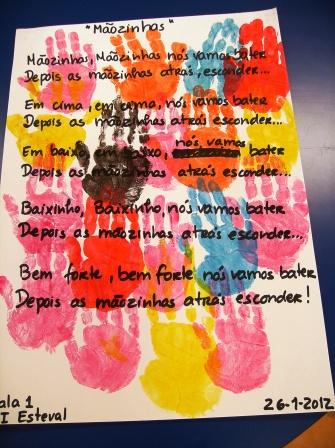 "Mãozinhas"
Mãozinhas, Mãozinhas nós vamos bater
Depois as mãozinhas atrás, esconder...
Em cima, em cima, nós vamos bater
Depois as mãozinhas atrás esconder...
Em baixo, em baixo, nós vamos bater
Depois as mãozinhas atrás esconder...
Baixinho, Baixinho, nós vamos bater
Depois as mãozinhas atrás esconder...
Bem forte, bem forte nós vamos bater
Depois as mãozinhas atrás esconder!
ala 1
I Esteval
26-1-2012